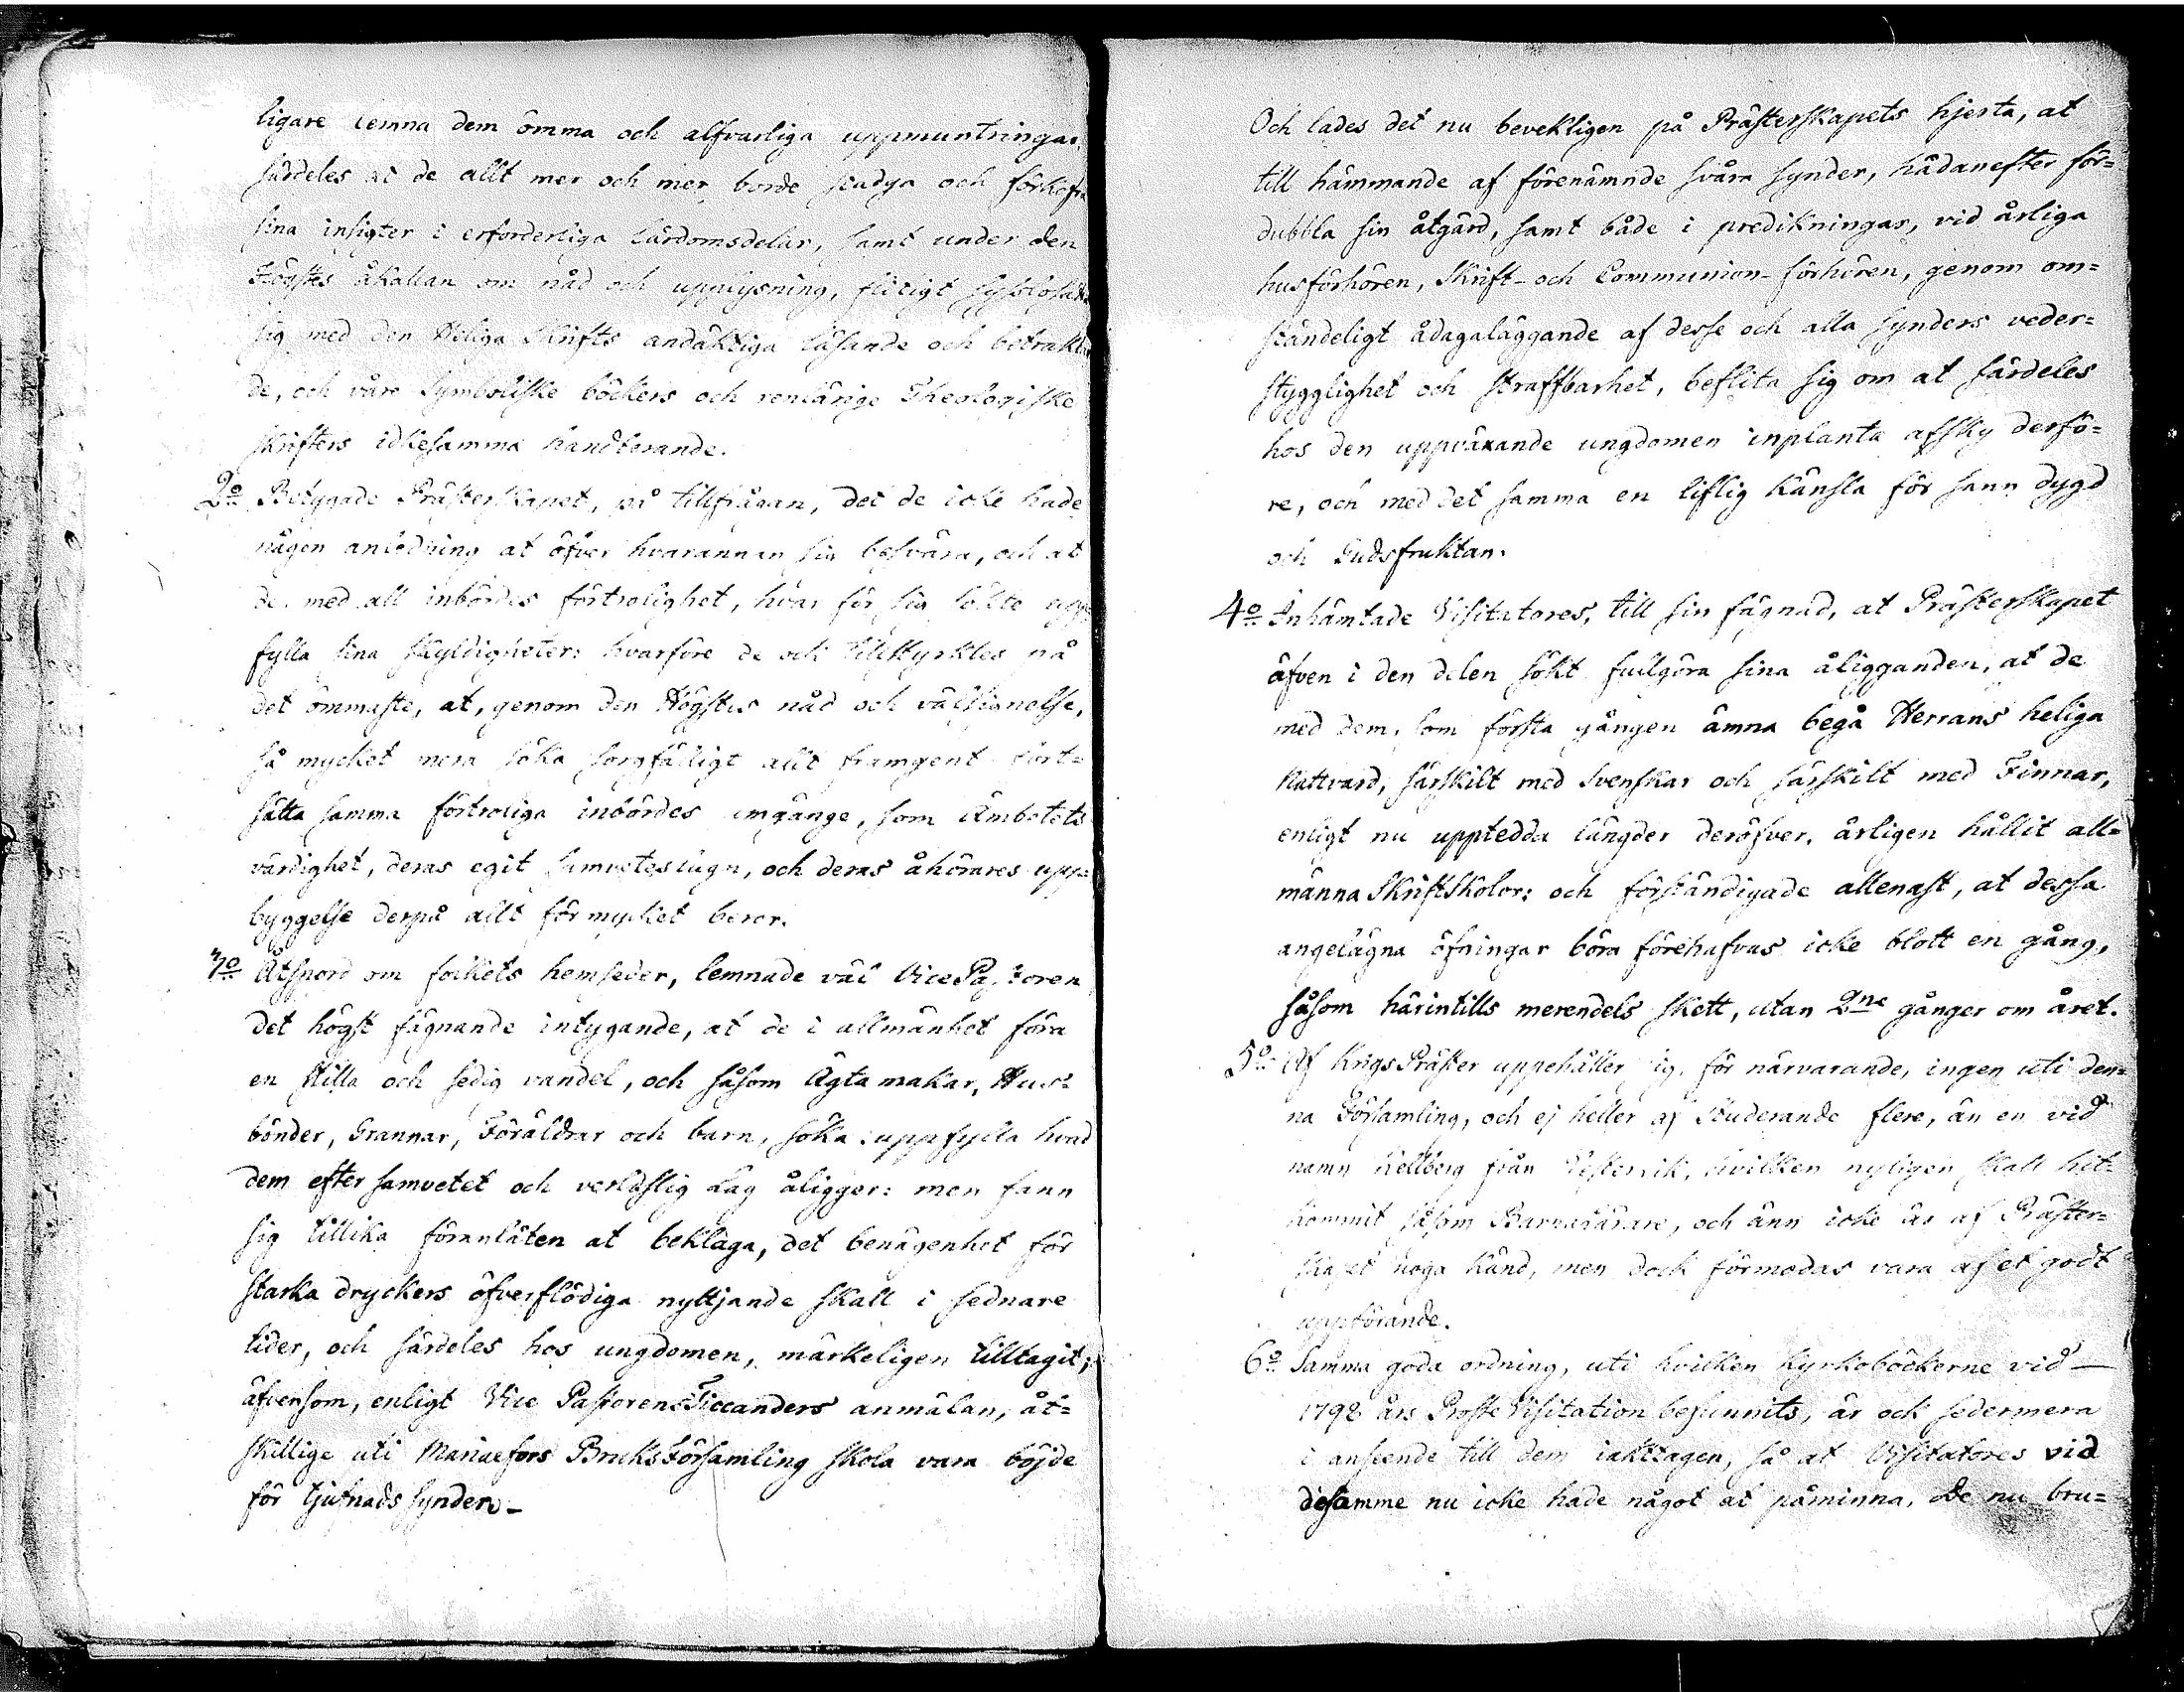 ligare lemna dem ömma och alfvarliga uppmuntringar,
särdeles at de allt mer och mer borde stadga och förkofra
sina insigter i erforderliga lärdomsdelar, samt under den
Högstes åkallan om nåd och upplysning, flitigt sysslosätta
sig med den Heliga Skrifts andäktiga läsande och betraktan
de, och våre Symboliske böckers och renlärige Theologiske
skrifters idkesamma handterande.
2o Betygade Prästerskapet, på tillfrågan, det de icke hade
någon anledning at öfver hvarannan sig besvära, och at
de med all inbördes förtrolighet, hvar för sig sökte upp
fylla sina skyldigheter: hvarföre de och tillstyrktes på
det ömmaste, at, genom den Högstes nåd och välsignelse,
så mycket mera söka sorgfälligt allt framgent fort=
sätta samma förtroliga inbördes umgänge, som Ämbetets
värdighet, deras egit samvetes lugn, och deras åhörares upp=
byggelse derpå allt för mycket beror.
3o Åtspord om folkets hemseder, lemnade väl Vice Pastoren
det högst fägnande intygande, at de i allmänhet föra
en stilla och sedig vandel, och såsom Ägta makar, Hus=
bönder, Grannar, Föräldrar och barn, söka uppfylla hvad
dem efter samvetet och verldslig Lag åligger: men fann
sig tillika föranlåten at beklaga, det benägenhet för
starka dryckers öfverflödiga nyttjande skall i sednare
tider, och särdeles hos ungdomen, märkeligen tilltagit;
äfvensom, enligt Vice Pastorens Ticcanders anmälan, åt=
skillige uti Mariæfors Bruks Församling skola vara böjde
för tjufnads synden.-
Och lades det nu bevekligen på Prästerskapets hjerta, at
till hämmande af förenämnde svåra synder, hädanefter för=
dubbla sin åtgärd, samt både i predikningar, vid årliga
husförhören, Skrift- och Communion-förhören, genom om=
ständeligt ådagaläggande af desse och alla synders veder=
stygglighet och straffbarhet, beflita sig om at särdeles
hos den uppväxande ungdomen inplanta afsky derfö=
re, och med det samma en liflig känsla för sann dygd
och Gudsfruktan.
4o Inhämtade Visitatores, till sin fägnad, at Prästerskapet
äfven i den delen sökt fullgöra sina åligganden, at de
med dem, som första gången ämna begå Herrans heliga
Nattvard, särskilt med Svenskar och särskilt med Finnar,
enligt nu upptedda längder deröfver, årligen hållit all=
männa Skriftskolor: och förständigade allenast, at dessa
angelägna öfningar böra förehafvas icke blott en gång,
såsom härintills merendels skett, utan 2ne gånger om året.
5o Af Krigs Präster uppehåller sig, för närvarande, ingen uti den=
na Församling, och ej heller af Studerande flere, än en vid
namn Hellberg från Vestervik, hvilken nyligen skall hit=
kommit såsom Barnalärare, och änn icke är af Präster=
skapet noga känd, men dock förmodas vara af et godt
uppförande.
6o Samma goda ordning, uti hvilken Kyrkoböckerne vid -
1798 års Prosts Visitation befunnits, är och sedermera
i anseende till dem iakttagen, så at Visitatores vid
desamme nu icke hade något at påminna. De nu bru=